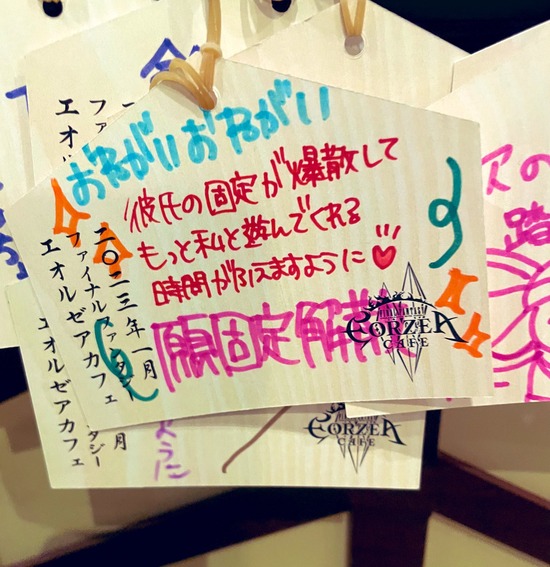 おねがいおねがい
彼氏の固定が爆散して
もっと私と遊んでくれる
時間がふえますように
願固定解散
二〇二三年一月
ファイナルファンタジー
エオルゼアカフェ
EORZEA
CAFE
エオルゼアカフェ
EORZEA
CAFE
ように
エオル
ファ
アの
踏